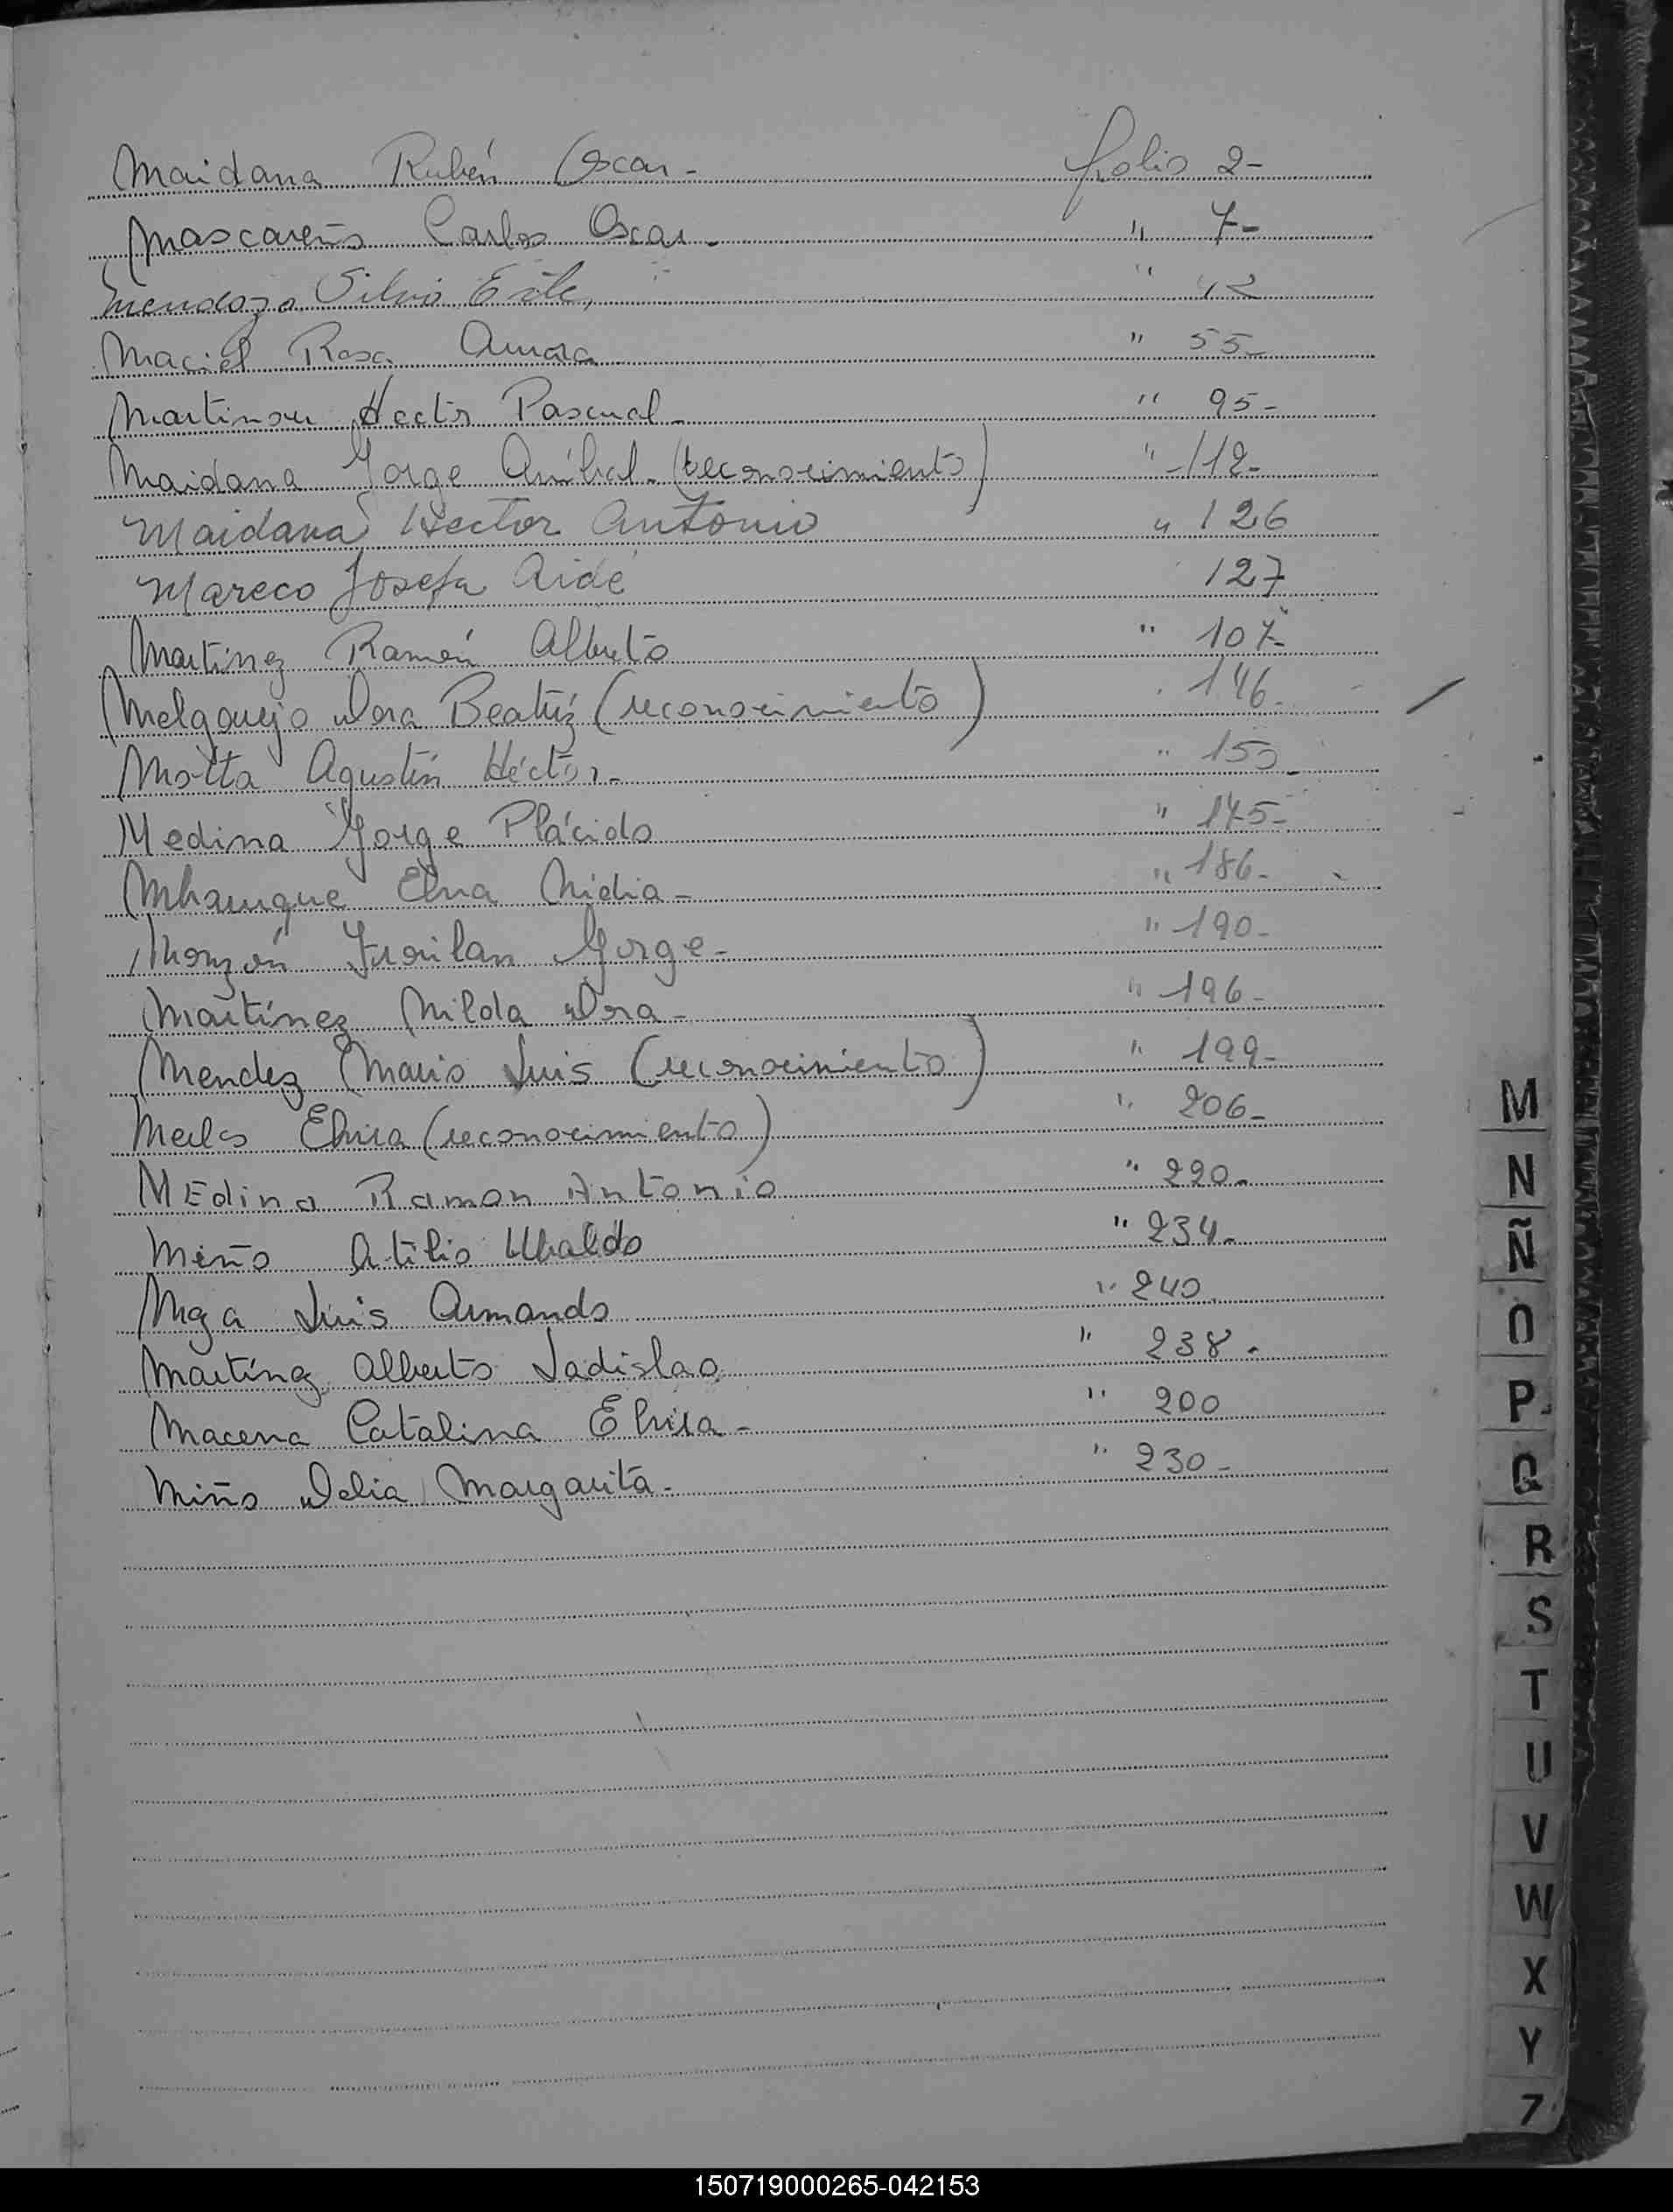 Maidana Rubén Oscar - folio 2-
Mascareño Carlos Oscar - " 7-
Mendoza Silvio Este, " 42
Maciel Rosa " 55-
Hector Pascual - " 95-
Maidana Jorge Aníbal - (reconocimiento) " - 112-
Maidana Hector Antonio " 126
Mareco Josefa Aidé 127
Martinez Ramón Alberto " 107-
Melgarejo Dora Beatríz (reconocimiento) " 146-
Motta Agustín Héctor - " 150-
Medina Jorge Plácido " 175-
Elva Nidia - " 186-
Monzón Jorge - " 190-
Martínez Nilda Dora - " 196-
Mendez Mario Luis (reconocimiento) " 199-
Elvira (reconocimiento) " 206-
MEdina Ramon Antonio " 220-
Miño Atilio Ubaldo " 234-
Meza Luis Armando " 240
Martínez Alberto Ladislao " 238-
Macena Catalina Elvira - " 200
Miño Delia Margarita - " 230-
M
N
Ñ
O
P
Q
R
S
T
U
V
W
X
Y
Z
150719000265-042153